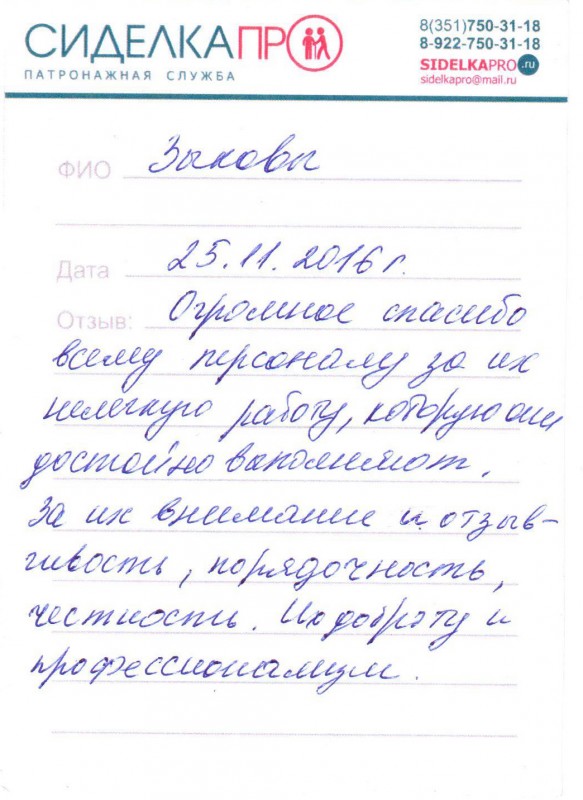 СИДЕЛКАПРО
ПАТРОНАЖНАЯ СЛУЖБА
8(351)750-31-18
8-922-750-31-18
SIDELKAPRO.ru
sidelkapro@mail.ru
ФИО Зыковы
Дата 25.11.2016г.
Отзыв: Огромное спасибо
всему персоналу за их
нелегкую работу, которую они
достойно выполняют.
За их внимание и отзыв-
чивость, порядочность,
честность. Их доброту и
профессионализм.